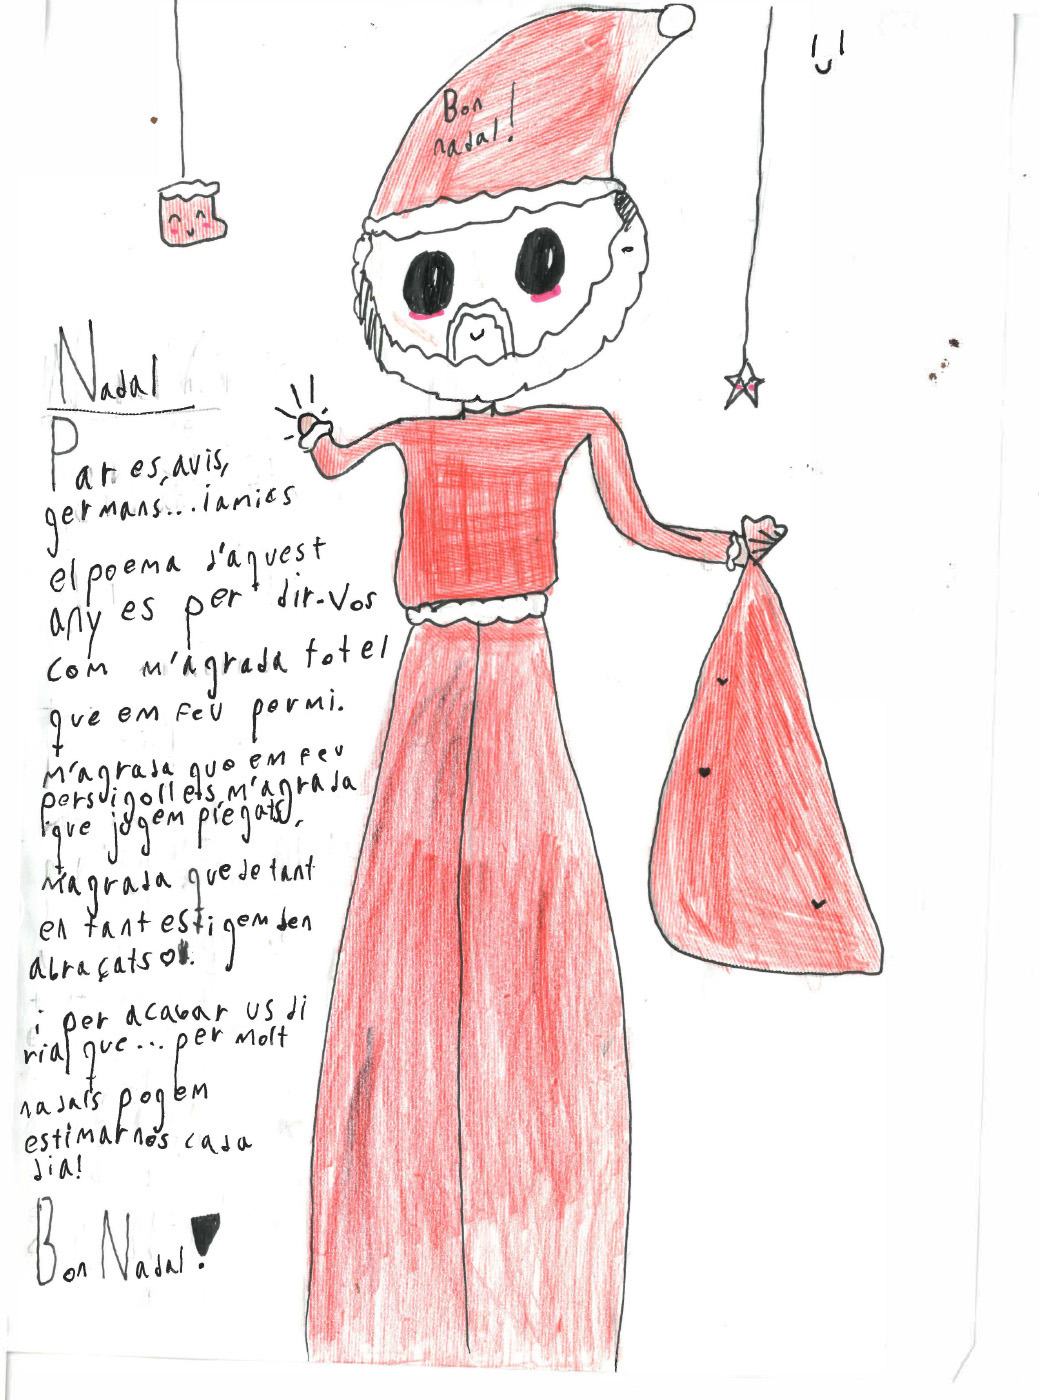 Bon
nadal!
Nadal
Pares, avis,
germans... i amics
el poema d'aquest
any es per dir-vos
com m'agrada tot el
que em feu per mi.
M'agrada que em feu
persigolles, m'agrada
que jogem plegats,
M'agrada que de tant
en tant estigem ben
abraçats
i per acabar us di
ria que... per molt
nadals pogem
estimarnos cada
dia!
Bon Nadal!